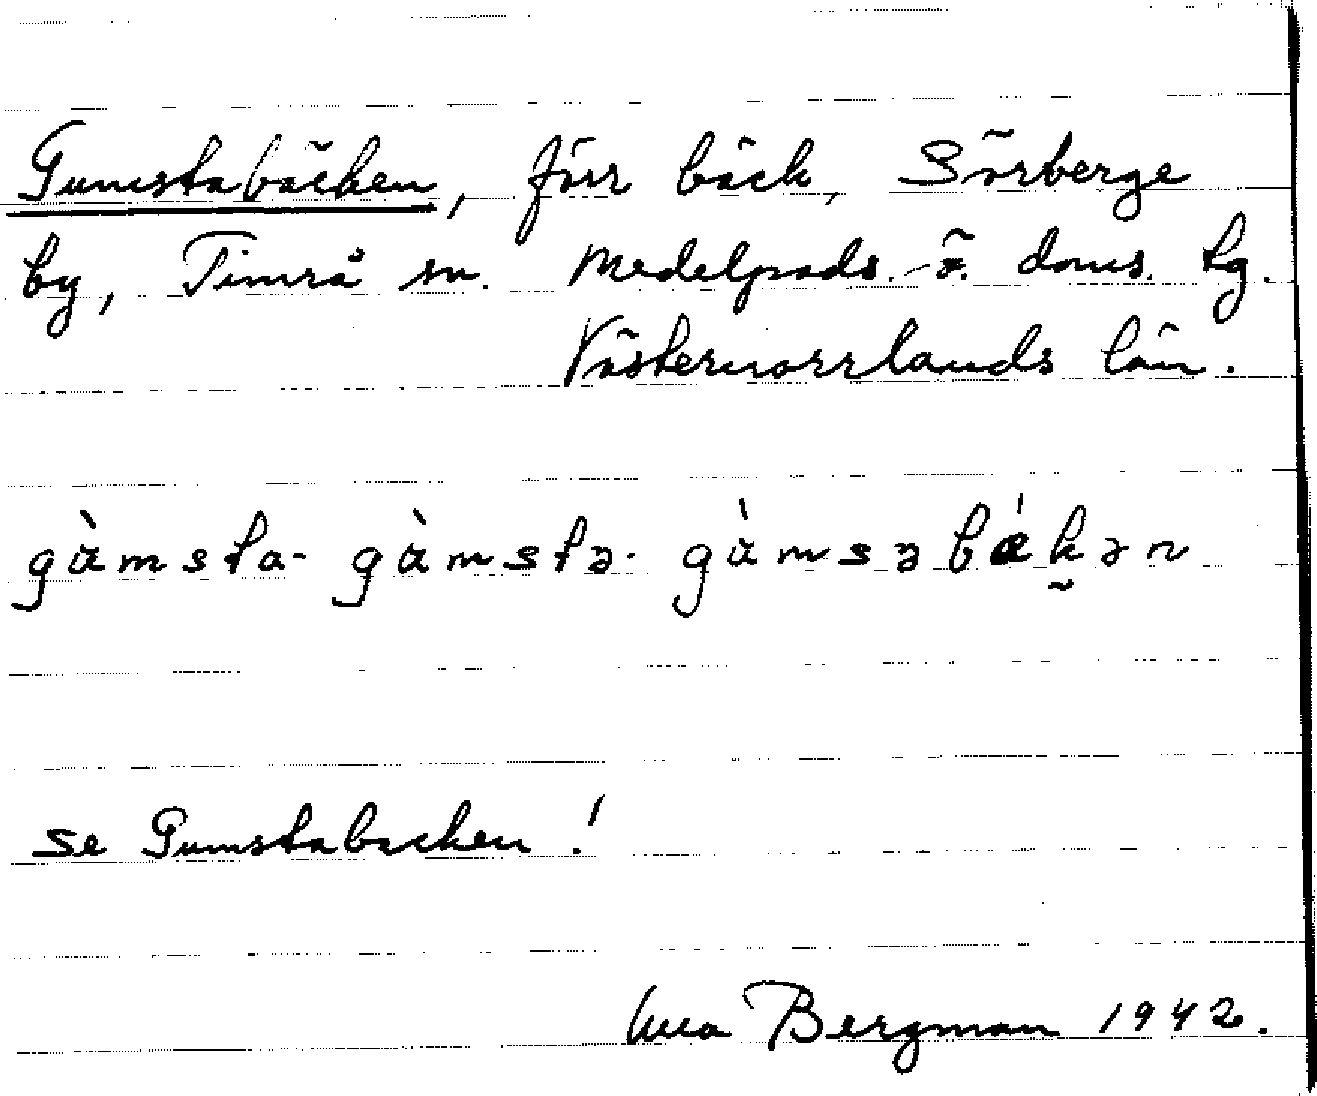 Gumstabäcken, förr bäck, Sörberge
by, Timrå sn. Medelpads ö. doms. tg.
Västernorrlands län.
gɑ̀msta- gɑ̀mstə- gɑ̀msəbǽk̰ən
se Gumstabacken!
Bergman 1942.